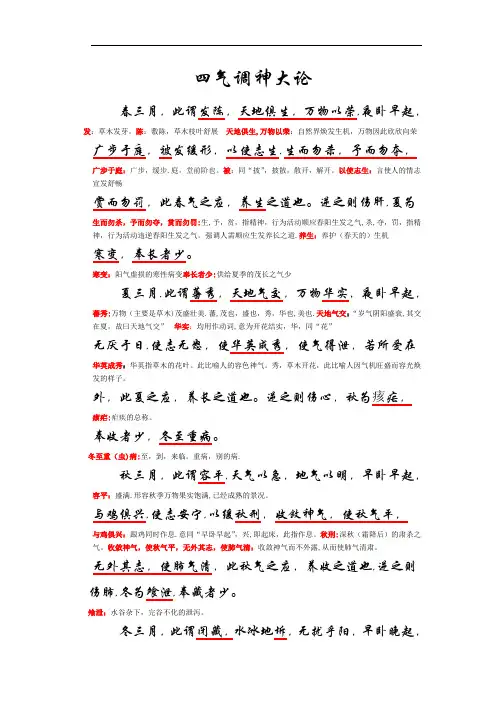 四气调神大论
春三月，此谓发陈，天地俱生，万物以荣,夜卧早起，
发：草木发芽。陈：敷陈，草木枝叶舒展　天地俱生,万物以荣：自然界焕发生机，万物因此欣欣向荣
广步于庭，被发缓形，以使志生,生而勿杀，予而勿夺，
广步于庭：广步，缓步.庭，堂前阶也。被：同“披”，披散，散开，解开。以使志生：言使人的情志
宣发舒畅
赏而勿罚，此春气之应，养生之道也。逆之则伤肝,夏为
生而勿杀，予而勿夺，赏而勿罚:生,予，赏，指精神，行为活动顺应春阳生发之气,杀，夺，罚，指精
神，行为活动违逆春阳生发之气。强调人需顺应生发养长之道.养生：养护（春天的）生机
寒变，奉长者少。
寒变：阳气虚损的寒性病变奉长者少:供给夏季的茂长之气少
夏三月,此谓蕃秀，天地气交，万物华实，夜卧早起，
蕃秀:万物（主要是草木)茂盛壮美.蕃,茂也，盛也，秀，华也,美也.天地气交：“岁气阴阳盛衰,其交
在夏，故曰天地气交”　华实：均用作动词,意为开花结实，华，同“花”
无厌于日,使志无怒，使华英成秀，使气得泄，若所爱在
华英成秀：华英指草木的花叶。此比喻人的容色神气。秀，草木开花，此比喻人因气机旺盛而容光焕
发的样子。
外，此夏之应，养长之道也。逆之则伤心，秋为痎疟，
痎疟:疟疾的总称。
奉收者少，冬至重病。
冬至重（虫)病:至，到，来临。重病，别的病.
秋三月，此谓容平,天气以急，地气以明，早卧早起，
容平：盛满.形容秋季万物果实饱满,已经成熟的景况。
与鸡俱兴,使志安宁,以缓秋刑，收敛神气，使秋气平，
与鸡俱兴：跟鸡同时作息.意同“早卧早起”。兴,即起床，此指作息。秋刑:深秋（霜降后）的肃杀之
气。收敛神气，使秋气平，无外其志，使肺气清：收敛神气而不外露,从而使肺气清肃。
无外其志，使肺气清，此秋气之应，养收之道也,逆之则
伤肺,冬为飧泄,奉藏者少。
飧泄：水谷杂下，完谷不化的泄泻。
冬三月，此谓闭藏，水冰地坼，无扰乎阳，早卧晚起，